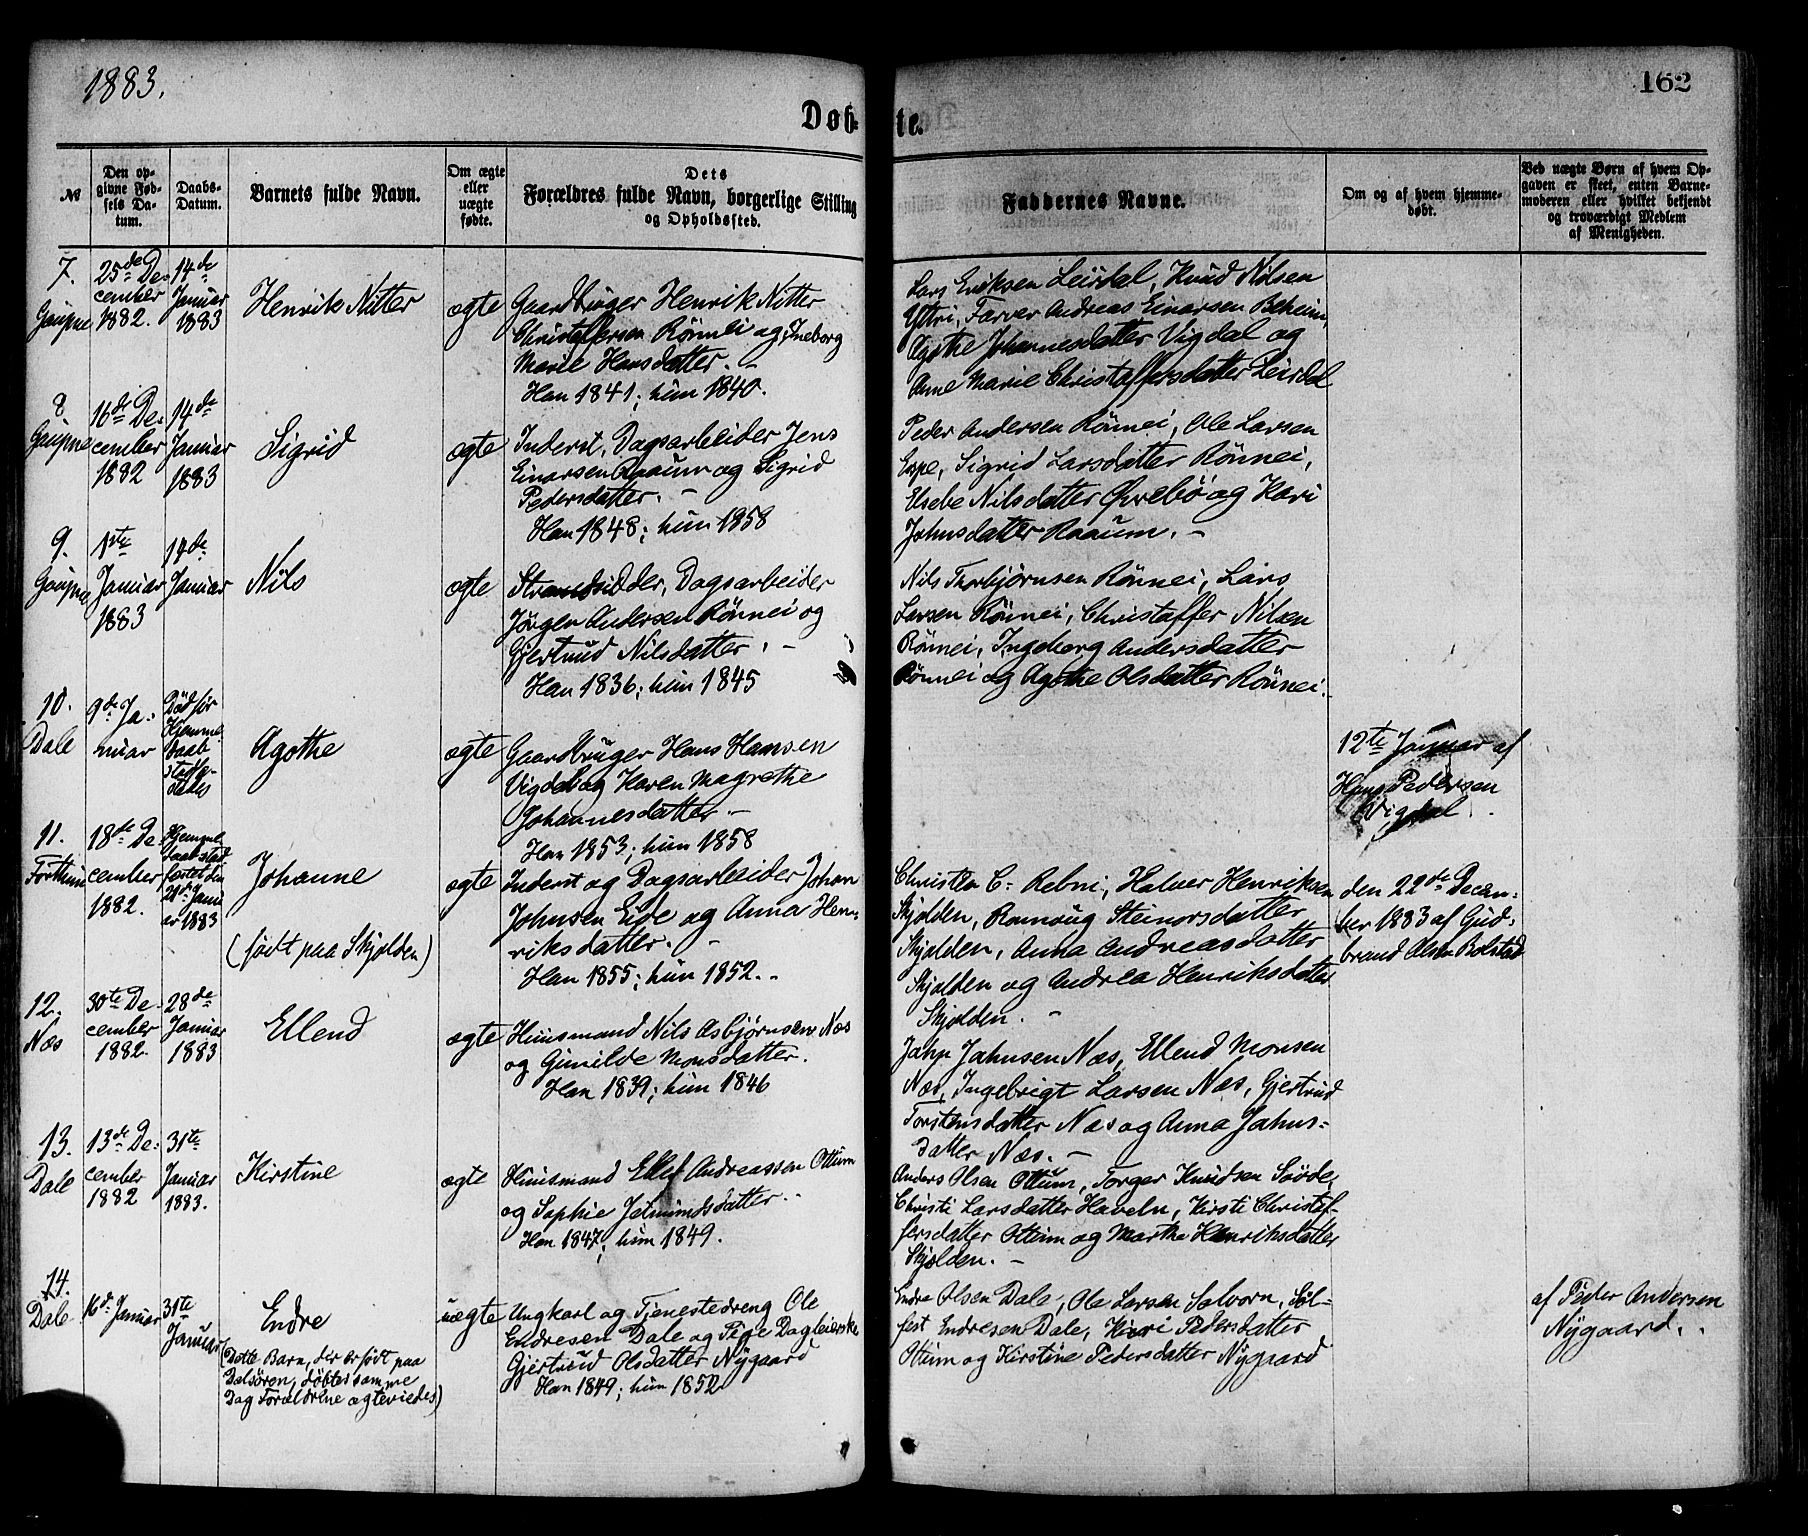 1883.
162
Døbte.
№
Den opgivne Fødsels Datum.
Daabs-Datum.
Barnets fulde Navn.
Om ægte eller uægte fødte.
Dets Forældres fulde Navn, borgerlige Stilling og Opholdssted.
Faddernes Navne.
Om og af hvem hjemmedøbt.
Ved uægte Børn af hvem Opgaven er skeet, enten Barnemoderen eller hvilket bekjendt og troværdigt Medlem af Menigheden.
7.
Gaupne
25de De-
cember
1882.
14de
Januar
1883
Henrik Nitter
ægte
Gaardbruger Henrik Nitter
Christaffersen Rönnei og Ineborg
Marie Hansdatter. -
Han 1841; hun 1840.
Lars Eriksen Leirdal, Knud Nilsen
Yttri, Farver Andreas Einarsen Beheim,
Agothe Johannesdatter Vigdal og
Anne Marie Christaffersdatter Leirdal
8
Gaupne
16de De-
cember
1882
14de
Januar
1883
Sigrid
ægte
Inderst, Dagsarbeider Jens
Einarsen Raaum og Sigrid
Pedersdatter. -
Han 1848; hun 1858
Peder Andersen Rönnei, Ole Larsen
Espe, Sigrid Larsdatter Rönnei,
Elsebe Nilsdatter Øvrebö og Kari
Johnsdatter Raaum. -
9.
Gaupne
1ste
Januar
1883
14de
Januar
Nils
ægte
Strandsidder, Dagsarbeider
Jörgen Andersen Rönnei og
Gjertrud Nilsdatter. -
Han 1836; hun 1845
Nils Thorbjörnsen Rönnei, Lars
Larsen Rönnei, Christaffer Nilsen
Rönnei, Ingeborg Andersdatter
Rönnei og Agothe Olsdatter Rönnei.
10.
Dale
9de Ja-
nuar
Död för
Hjemme
daab
stadfæ-
stedes
Agothe
ægte
Gaardbruger Hans Hansen
Vigdal og Karen Magrethe
Johannesdatter. -
Han 1853; hun 1858
12te Januar af
Hans Pedersen
Vigdal.
11.
Forthun
18de De
cember
1882.
Hjemme
daab stad
fæstet den
21de Janu
ar 1883
Johanne
(født paa Skjolden)
ægte
Inderst og Dagsarbeider Johan
Johnsen Eide og Anna Hen-
riksdatter. -
Han 1855; hun 1852. -
Christen C. Rebni, Halver Henriksen
Skjolden, Rannoug Steinorsdatter
Skjolden, Anna Andreasdatter
Skjolden og Andrea Henriksdatter
Skjolden. -
den 22de Decem-
ber 1883 af Gud-
brand Olsen Bolstad
12.
Næs
30te De-
cember
1882.
28de
Januar
1883
Ellend
ægte
Huusmand Nils Asbjørnsen Næs
og Gunilde Monsdatter.
Han 1839; hun 1846
Jahn Jahnsen Næs, Ellend Monsen
Næs, Ingebrigt Larsen Næs, Gjertrud
Torstensdatter Næs og Anna Jahns-
datter Næs. -
13.
Dale
13de De-
cember
1882
31te
Januar
1883.
Kirstine
ægte
Huusmand Ellef Andreassen Ottum
og Sophie Jetmundsdatter. -
Han 1847; hun 1849.
Anders Olsen Ottum, Torger Knudsen Sörde,
Christi Larsdatter Haveln, Kirsti Christaf-
fersdatter Ottum og Marthe Henriksdatter
Skjolden. -
14.
Dale
16de Januar
31te
Januar
Endre
(Dette Barn, der er født paa
Dalsören, døbtes samme
Dag Forældrene ægteviedes)
uægte
Ungkarl og Tjenestedreng Ole
Endresen Dale og Pige Dagleierske
Gjertrud Olsdatter Nygaard
Han 1849; hun 1852
Endre Olsen Dale, Ole Larsen Solvorn, Söl-
fest Endresen Dale, Kari Pedersdatter
Ottum og Kirstine Pedersdatter Nygaard
af Peder Andersen
Nygaard.